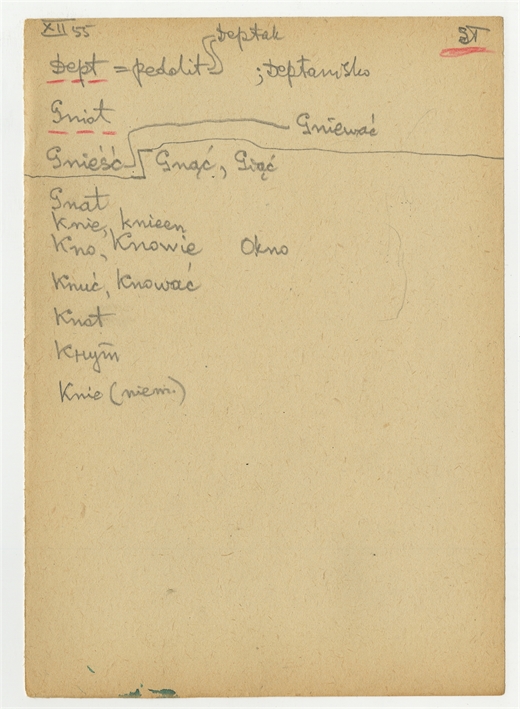 XII 55
Deptak
Dept = pedolit ; Deptanisko
Gniot
Gniewać
Gnieść Gnąć, Giąć
Gnat
Knie, knieen
Kno, Knowie Okno
Knuć, Knować
Knot
Knie (niem.)